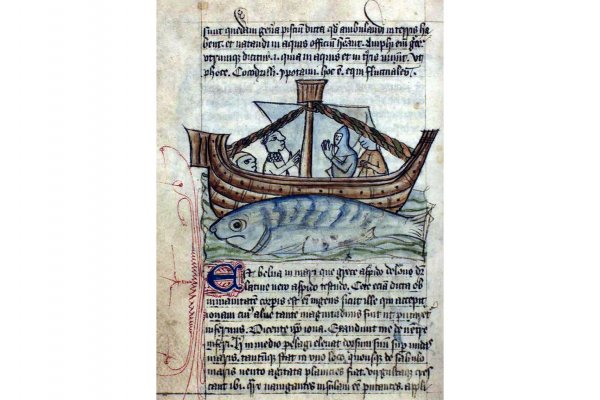 sunt quedam gen̄a pisciū dicta qd̄ ambulandi in terris ha
bent. et natandi in aquis officiū h̄eant. Amphi em̄ grec
utrumque dicitur .i. quia in aquis et in t̄ris uiuūt. Vt
phoce. Cocodrilli. ypotami. hoc ē. equi fluctuales.
Est belua in mari que grece aspido delone dr̄
latine uero aspido testudo. Cete eciā dicta ob
inmanitatē corpis est em̄ ingens sicut ille qui excepit
ionam cuiꝰ aluꝰ tante magnitudinis fuit ut putaret
infernus. Dicente ip̄o iona. Exaudiuit me de uentre
inferi. in medio pelagi eleuat dorsum suū sup̄ undas
maris. tantūque stat in uno loco. quousque de sabulo
maris uento agitata planicies fiat. uirgultaque cres
cant ibi. nauigantes insulam eē putantes. appli